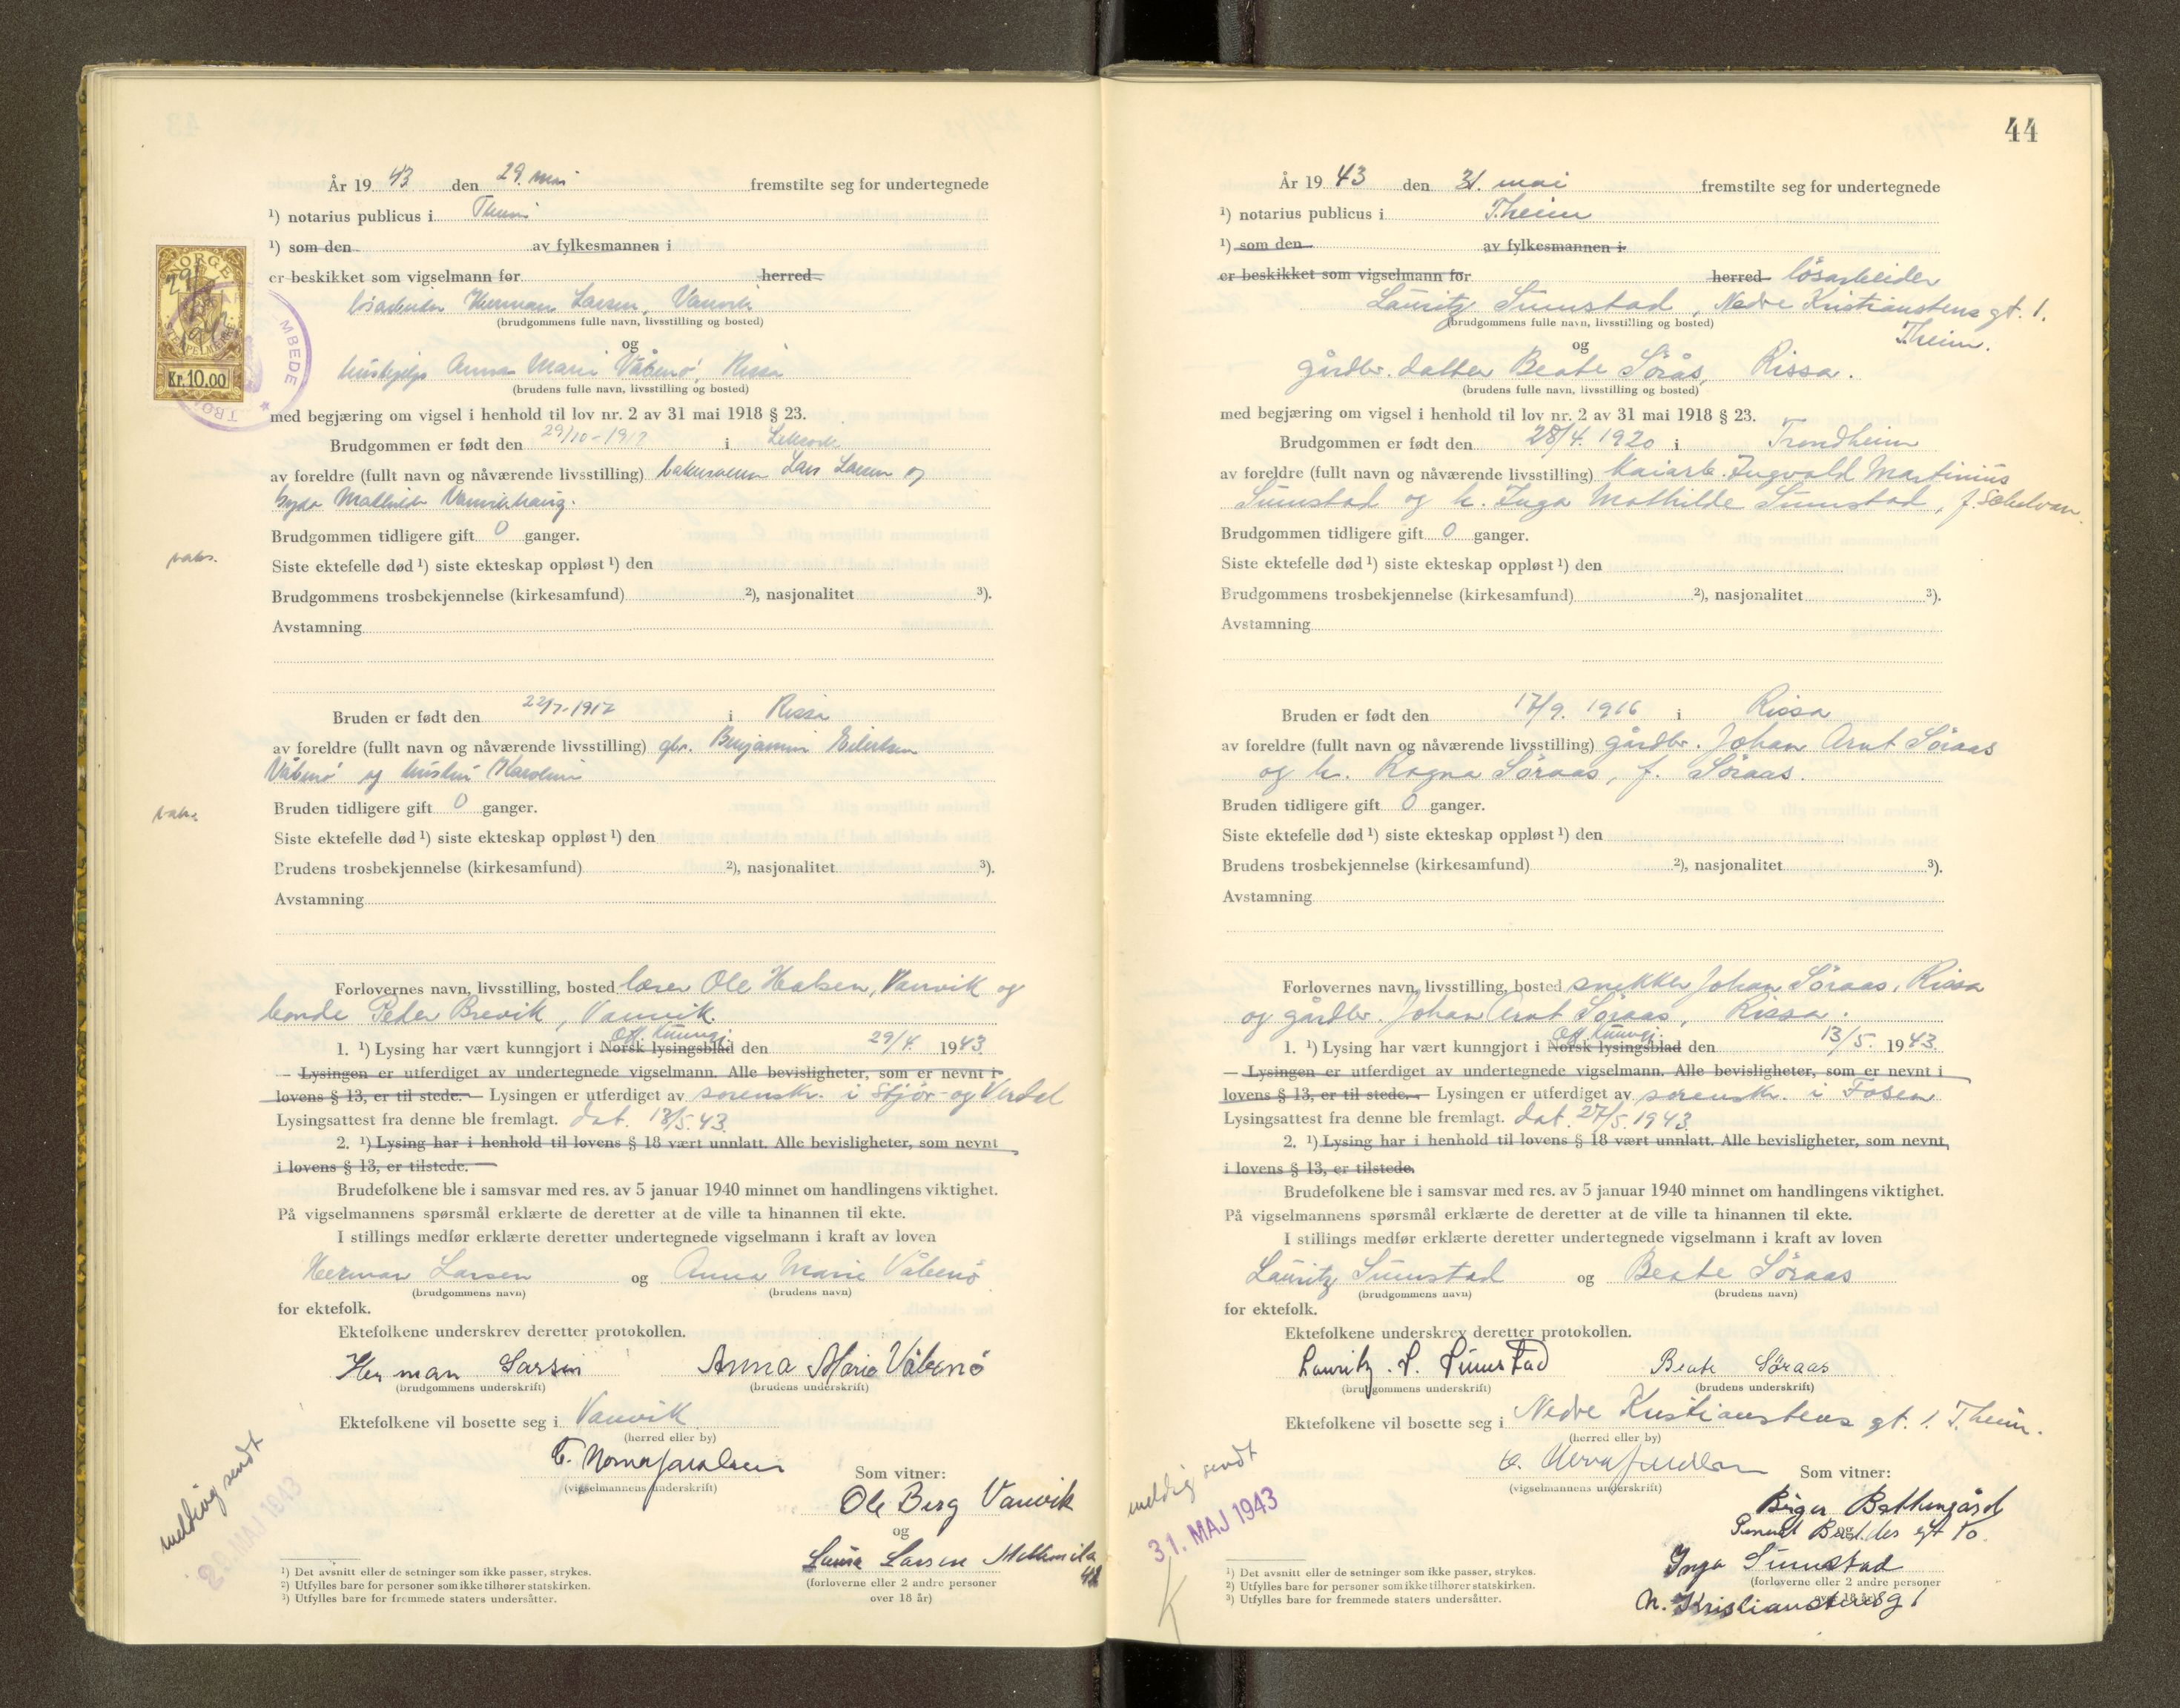 År 19 43 den 29. mai fremstilte seg for undertegnede
¹) notarius publicus i Theim
¹) som den av fylkesmannen i
er beskikket som vigselmann for herred
løsarbeider Herman Larsen, Vanvik
(brudgommens fulle navn, livsstilling og bosted)
og
hushjelp Anna Marie Våbenö, Rissa
(brudens fulle navn, livsstilling og bosted)
NORGE
STEMPELMERKE
Kr. 10.00
MBEDE
med begjæring om vigsel i henhold til lov nr. 2 av 31 mai 1918 § 23.
Brudgommen er født den 29/10-1917 i Leksvik
av foreldre (fullt navn og nåværende livsstilling) Lars Larsen og
Mathilde
Brudgommen tidligere gift 0 ganger.
Siste ektefelle død ¹) siste ekteskap oppløst ¹) den
Brudgommens trosbekjennelse (kirkesamfund) ²), nasjonalitet ³).
Avstamning
Bruden er født den 22/7-1917 i Rissa
av foreldre (fullt navn og nåværende livsstilling) gbr. Benjamin Eilertsen
Våbenö og hustru Karoline
Bruden tidligere gift 0 ganger.
Siste ektefelle død ¹) siste ekteskap oppløst ¹) den
Brudens trosbekjennelse (kirkesamfund) ²), nasjonalitet ³).
Avstamning
Forlovernes navn, livsstilling, bosted lærer Ole Halsen, Vanvik og
bonde Peder Brevik, Vanvik.
Off. Kunngj.
1. ¹) Lysing har vært kunngjort i Norsk lysingsblad den 29/4. 1943.
— Lysingen er utferdiget av undertegnede vigselmann. Alle bevisligheter, som er nevnt i
lovens § 13, er til stede. — Lysingen er utferdiget av sorenskr. i Stjør- og Verdal
Lysingsattest fra denne ble fremlagt. dat. 18/5.43.
2. ¹) Lysing har i henhold til lovens § 18 vært unnlatt. Alle bevisligheter, som nevnt
i lovens § 13, er tilstede. —
Brudefolkene ble i samsvar med res. av 5 januar 1940 minnet om handlingens viktighet.
På vigselmannens spørsmål erklærte de deretter at de ville ta hinannen til ekte.
I stillings medfør erklærte deretter undertegnede vigselmann i kraft av loven
Herman Larsen og Anna Marie Våbenö
(brudgommens navn) (brudens navn)
for ektefolk.
Ektefolkene underskrev deretter protokollen.
Herman Larsen Anna Marie Våbenö
(brudgommens underskrift) (brudens underskrift)
Ektefolkene vil bosette seg i Vanvik
(herred eller by)
(vigselmannens underskrift)
Som vitner:
Ole Berg Vanvik
og
Laura Larsen
(forloverne eller 2 andre personer
over 18 år)
melding sendt
MAJ 1943
¹) Det avsnitt eller de setninger som ikke passer, strykes.
²) Utfylles bare for personer som ikke tilhører statskirken.
³) Utfylles bare for fremmede staters undersåtter.
44
År 19 43 den 31. mai fremstilte seg for undertegnede
¹) notarius publicus i T.heim
¹) som den av fylkesmannen i
er beskikket som vigselmann for herred løsarbeider
Lauritz Sumstad, Nedre Kristianstens gt. 1.
(brudgommens fulle navn, livsstilling og bosted) T.heim.
og
gårdbr. datter Beate Sörås, Rissa.
(brudens fulle navn, livsstilling og bosted)
med begjæring om vigsel i henhold til lov nr. 2 av 31 mai 1918 § 23.
Brudgommen er født den 28/4. 1920 i Trondheim
av foreldre (fullt navn og nåværende livsstilling) Kaiarb. Ingvald Martinius
Sumstad og h. Inga Mathilde Sumstad, f.
Brudgommen tidligere gift 0 ganger.
Siste ektefelle død ¹) siste ekteskap oppløst ¹) den
Brudgommens trosbekjennelse (kirkesamfund) ²), nasjonalitet ³).
Avstamning
Bruden er født den 17/9. 1916 i Rissa
av foreldre (fullt navn og nåværende livsstilling) gårdbr. Johan Arnt Söraas
og h. Ragna Söraas, f. Söraas.
Bruden tidligere gift 0 ganger.
Siste ektefelle død ¹) siste ekteskap oppløst ¹) den
Brudens trosbekjennelse (kirkesamfund) ²), nasjonalitet ³).
Avstamning
Forlovernes navn, livsstilling, bosted snekker Johan Söraas, Rissa
og gårdbr. Johan Arnt Söraas, Rissa.
Off. Kunngj.
1. ¹) Lysing har vært kunngjort i Norsk lysingsblad den 13/5. 1943.
— Lysingen er utferdiget av undertegnede vigselmann. Alle bevisligheter, som er nevnt i
lovens § 13, er til stede. — Lysingen er utferdiget av sorenskr. i Fosen
Lysingsattest fra denne ble fremlagt. dat. 27/5.1943.
2. ¹) Lysing har i henhold til lovens § 18 vært unnlatt. Alle bevisligheter, som nevnt,
i lovens § 13, er tilstede.
Brudefolkene ble i samsvar med res. av 5 januar 1940 minnet om handlingens viktighet.
På vigselmannens spørsmål erklærte de deretter at de ville ta hinannen til ekte.
I stillings medfør erklærte deretter undertegnede vigselmann i kraft av loven
Lauritz Sumstad og Beate Söraas
(brudgommens navn) (brudens navn)
for ektefolk.
Ektefolkene underskrev deretter protokollen.
Lauritz. S. Sumstad Beate Söraas
(brudgommens underskrift) (brudens underskrift)
Ektefolkene vil bosette seg i Nedre Kristianstens gt. 1. T.heim.
(herred eller by)
(vigselmannens underskrift)
Som vitner:
Birger
og
Inga Sumstad
(forloverne eller 2 andre personer
over 18 år)
N. Kristianstensg 1
melding sendt
31. MAJ 1943
K
¹) Det avsnitt eller de setninger som ikke passer, strykes.
²) Utfylles bare for personer som ikke tilhører statskirken.
³) Utfylles bare for fremmede staters undersåtter.